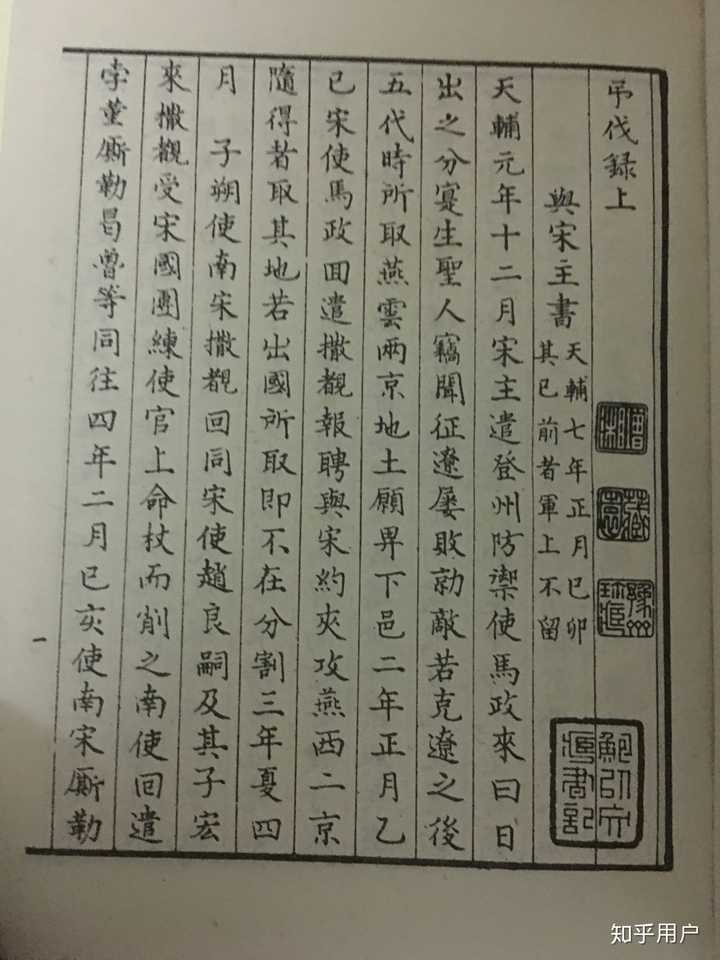 弔伐録上
與宋主書
天輔七年正月已卯
其已前者軍上不留
天輔元年十二月宋主遣登州防禦使馬政來曰日
出之分寔生聖人竊聞征遼屢敗勍敵若克遼之後
五代時所取燕雲兩京地土願畀下邑二年正月乙
已宋使馬政回遣撒覩報聘與宋約夾攻燕西二京
隨得者取其地若出國所取即不在分割三年夏四
月 子朔使南宋撒覩回同宋使趙良嗣及其子宏
來撒覩受宋國團練使官上命杖而削之南使回遣
孛堇廝勒昌曾等同往四年二月已亥使南宋廝勒
一
知乎用户